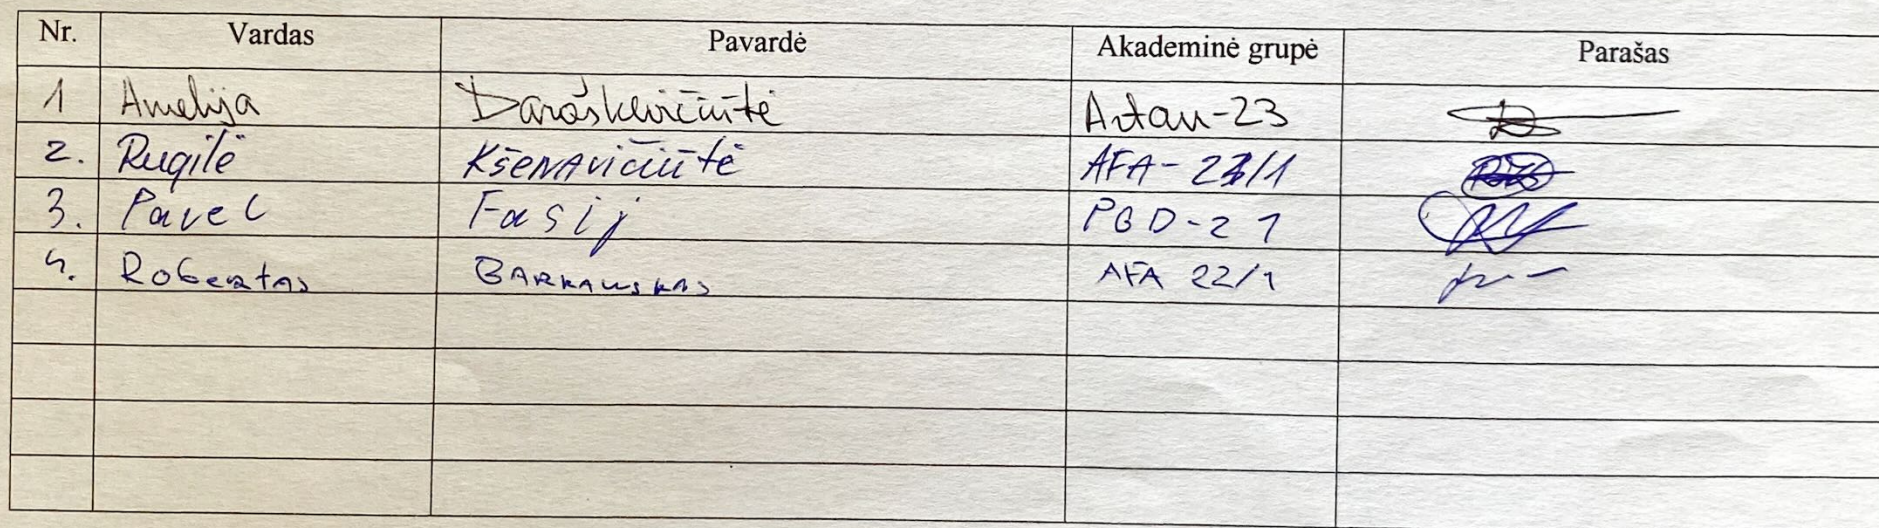 Nr. Vardas Pavardė Akademinė grupė Parašas
1 Amelija Daraškevičiūtė Astau-23
2. Rugilė Kšenavičiūtė AFA-23/1
3. Pavel Fasij PGD-21
4. Robertas BARKAUSKAS AFA 22/1